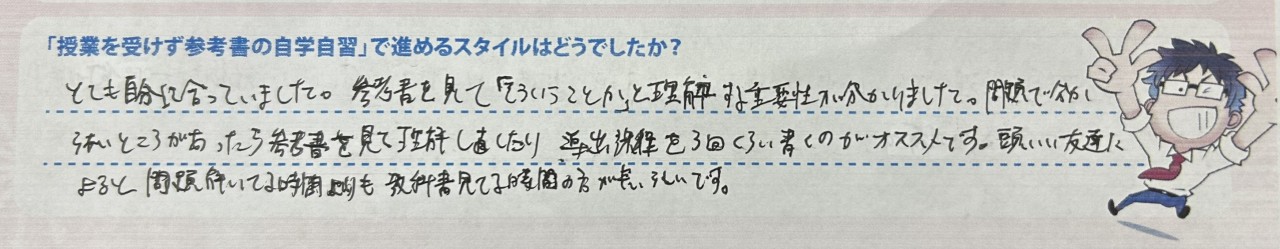 「授業を受けず参考書の自学自習」で進めるスタイルはどうでしたか？
とても自分に合っていました。参考書を見て「そういうことか」と理解する重要性が分かりました。問題で分か
らないところがあったら参考書を見て理解し直したり 導出過程を3回くらい書くのがオススメです。頭いい友達に
よると 問題解いてる時間よりも 教科書見てる時間の方が長いらしいです。